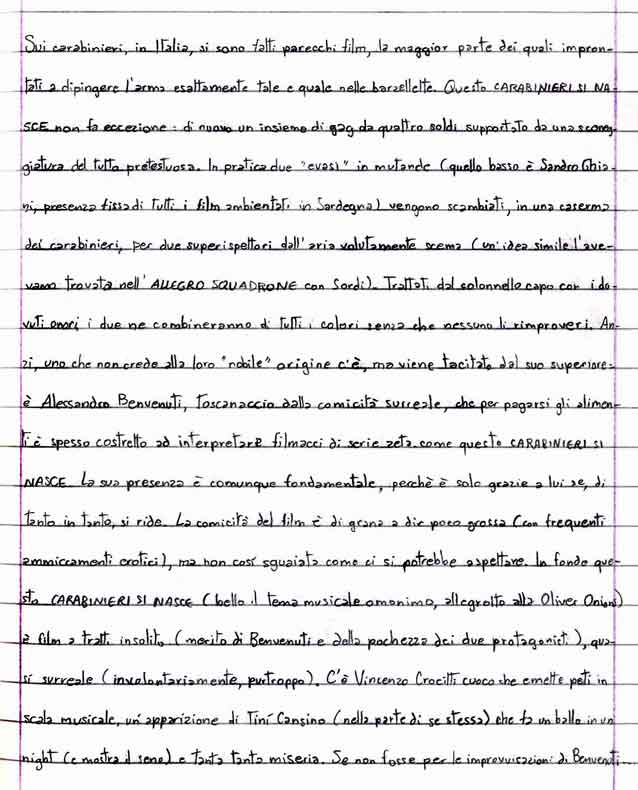 Sui carabinieri, in Italia, si sono fatti parecchi film, la maggior parte dei quali impron-
tati a dipingere l'arma esattamente tale e quale nelle barzellette. Questo CARABINIERI SI NA-
SCE non fa eccezione: di nuovo un insieme di gag da quattro soldi supportato da una sceneg-
giatura del tutto pretestuosa. In pratica due "evasi" in mutande (quello basso è Sandro Ghia-
ni, presenza fissa di tutti i film ambientati in Sardegna) vengono scambiati, in una caserma
dei carabinieri, per due superispettori dall'aria volutamente scema (un'idea simile l'ave-
vamo trovata nell'ALLEGRO SQUADRONE con Sordi). Trattati dal colonnello capo con i do-
vuti onori i due ne combineranno di tutti i colori senza che nessuno li rimproveri. An-
zi, uno che non crede alla loro "nobile" origine c'è, ma viene tacitato dal suo superiore:
è Alessandro Benvenuti, toscanaccio dalla comicità surreale, che per pagarsi gli alimen-
ti è spesso costretto ad interpretare filmacci di serie zeta come questo CARABINIERI SI
NASCE. La sua presenza è comunque fondamentale, perchè è solo grazie a lui se, di
tanto in tanto, si ride. La comicità del film è di grana a dir poco grossa (con frequenti
ammiccamenti erotici), ma non così sguaiata come ci si potrebbe aspettare. In fondo que-
sto CARABINIERI SI NASCE (bello il tema musicale omonimo, allegrotto alla Oliver Onions)
è film a tratti insolito (merito di Benvenuti e della pochezza dei due protagonisti), qua-
si surreale (involontariamente, purtroppo). C'è Vincenzo Crocitti cuoco che emette peti in
scala musicale, un'apparizione di Tinì Cansino (nella parte di se stessa) che fa un ballo in un
night (e mostra il seno) e tanta tanta miseria. Se non fosse per le improvvisazioni di Benvenuti...